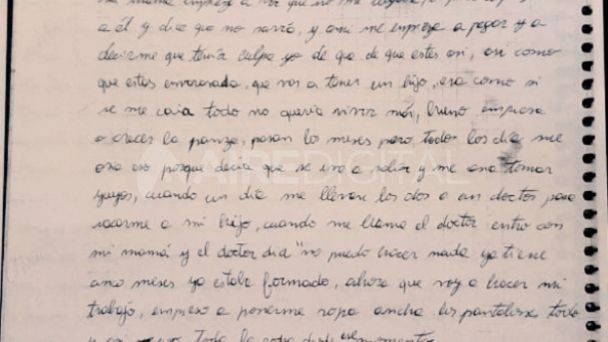 mi mamá empieza a ver que no me
a él y dia que no narró, y ami me empeze a pegar y a
decirme que tenía culpa yo de que de que estes asi, asi como
que estas embarasada, que vas a tener un hijo, era como si
se me caia todo no queria vivir más, bueno empiesa
a crecer la panza, pasan los meses pero todos los dia me
eso porque decia que se iva a salir y me asia tomar
yuyos, cuando un día me llevan los dos a un doctor para
sacarme a mi hijo, cuando me llama el doctor entro con
mi mamá y el doctor dia "no puedo hacer nada ya tiene
cinco meses ya estaba formado, ahora que voy a hacer mi
trabajo, empeso a ponerme ropa ancha los pantalones todo
y asi toda la ropa desde ese momento
AIREDIGITAL